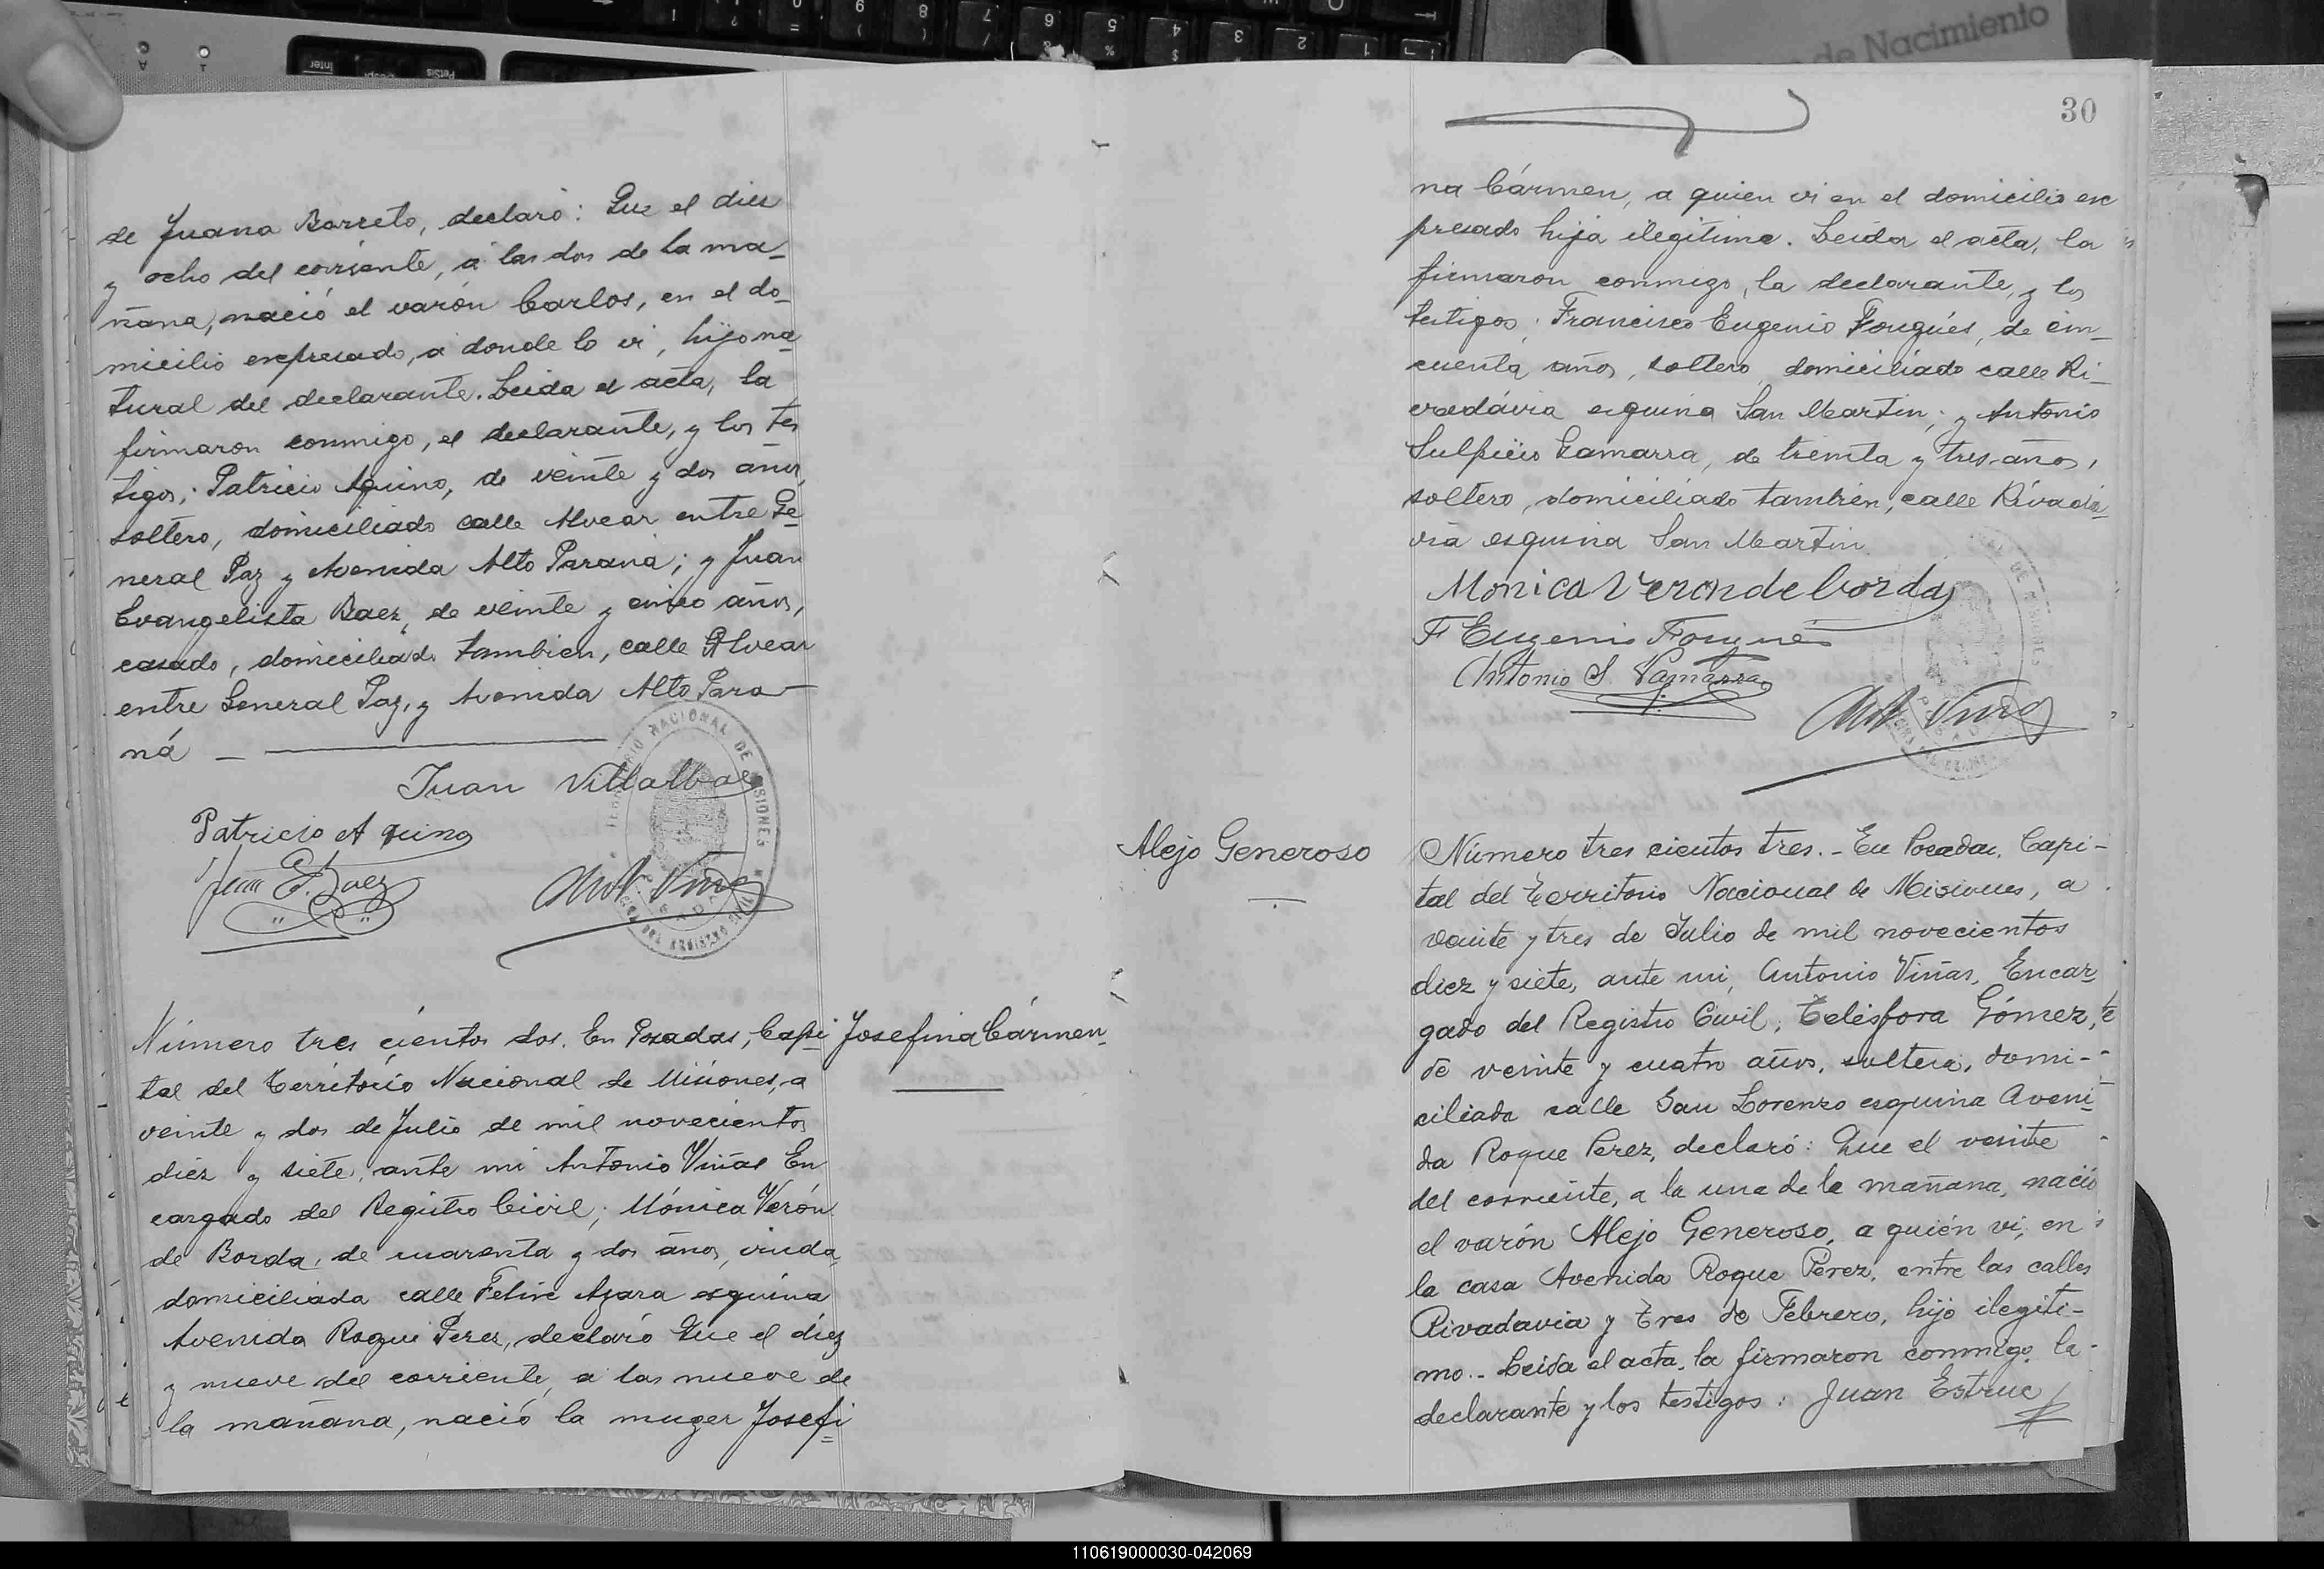 de Juana Barreto, declaró: Que el dies
y ocho del corriente, á las dos de la ma_
ñana, nació el varón Carlos, en el do_
micilio expresado, a donde lo vi, hijo na_
tural del declarante. Leida el acta, la
firmaron conmigo, el declarante, y los tes
tigos; Patricio Aquino, de veinte y dos años,
soltero, domiciliado calle Alvear entre Ge_
neral Paz y Avenida Alto Paraná; y Juan
Evangelista Baez, de veinte y cinco años,
casado, domiciliado tambien, calle Alvear
entre General Paz, y Avenida Alto Para
ná _
Juan Villalba
Patricio Aquino
Juan E. Baez
Ant. Viñas
TERRITORIO NACIONAL DE MISIONES
Número tres cientos dos. En Posadas, Capi
Josefina Cármen
tal del Territorio Nacional de Misiones, a
veinte y dos de Julio de mil novecientos
diez y siete, ante mi Antonio Viñas En
cargado del Registro Civil; Mónica Verón
de Borda, de cuarenta y dos años, viuda,
domiciliada calle Felix Azara esquina
Avenida Roque Perez, declaró Que el diez
y nueve del corriente, a las nueve de
la mañana, nació la muger Josefi
30
na Cármen, a quien vi en el domicilio ex
presado hija ilegitima. Leida el acta, la
firmaron conmigo, la declarante, y los
testigos; Francisco Eugenio Fougués, de cin_
cuenta años, soltero, domiciliado calle Ri_
vadávia esquina San Martin; y Antonio
Sulpicio Gamarra, de treinta y tres años,
soltero, domiciliado tambien, calle Rivadá_
via esquina San Martin
Monica Veron de Borda
F Eugenio Fougués
Antonio S. Gamarra
Ant. Viñas
Alejo Generoso
Número tres cientos tres.- En Posadas, Capi-
tal del Territorio Nacional de Misiones, a
veinte y tres de Julio de mil novecientos
diez y siete, ante mi, Antonio Viñas, Encar_
gado del Registro Civil; Telésfora Gómez,
de veinte y cuatro años, soltera, domi-
ciliada calle San Lorenzo esquina Aveni_
da Roque Perez, declaró: Que el veinte
del corriente, a la una de la mañana, nació
el varón Alejo Generoso, a quién vi, en
la casa Avenida Roque Pérez, entre las calles
Rivadavia y Tres de Febrero, hijo ilegiti-
mo.- Leida el acta, la firmaron conmigo, la
declarante y los testigos: Juan Estruc
110619000030-042069